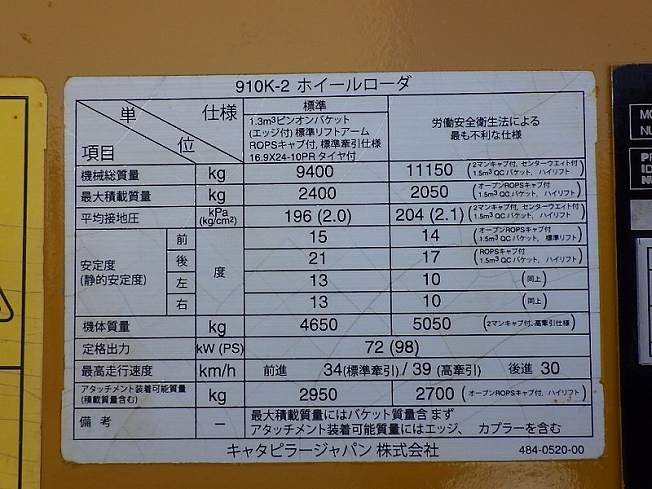 910K-2 ホイールローダ
単 位 仕様 項目
標準
1.3m³ピンオンバケット
(エッジ付) 標準リフトアーム
ROPSキャブ付, 標準牽引仕様
16.9X24-10PR タイヤ付
労働安全衛生法による
最も不利な仕様
機械総質量 kg 9400 11150 (2マンキャブ付, センターウエイト付 1.5m³ QC バケット, ハイリフト)
最大積載質量 kg 2400 2050 (オープンROPSキャブ付 1.5m³ QC バケット, ハイリフト)
平均接地圧 kPa (kg/cm²) 196 (2.0) 204 (2.1) (2マンキャブ付, センターウエイト付 1.5m³ QC バケット, ハイリフト)
安定度 (静的安定度) 度
前 15 14 (オープンROPSキャブ付 1.5m³ QC バケット, 標準リフト)
後 21 17 (ROPSキャブ付 1.5m³ QC バケット, ハイリフト)
左 13 10 (同上)
右 13 10 (同上)
機体質量 kg 4650 5050 (2マンキャブ付, 高牽引仕様)
定格出力 kW (PS) 72 (98)
最高走行速度 km/h 前進 34(標準牽引) / 39 (高牽引) 後進 30
アタッチメント装着可能質量 (積載質量含む) kg 2950 2700 (オープンROPSキャブ付, ハイリフト)
備 考 － 最大積載質量にはバケット質量含まず
アタッチメント装着可能質量にはエッジ、カプラーを含む
キャタピラージャパン 株式会社 484-0520-00